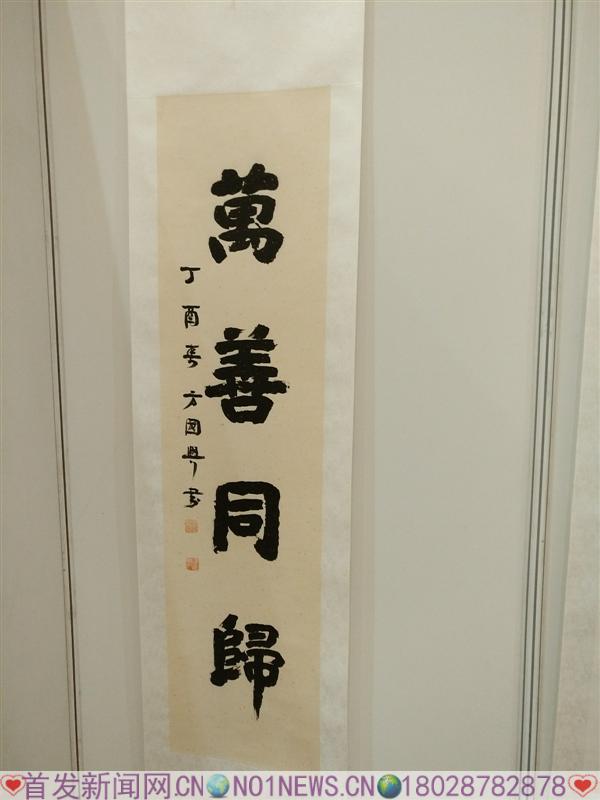 萬善同歸
丁酉春方國興書
首发新闻网.CN NO1NEWS.CN 18028782878